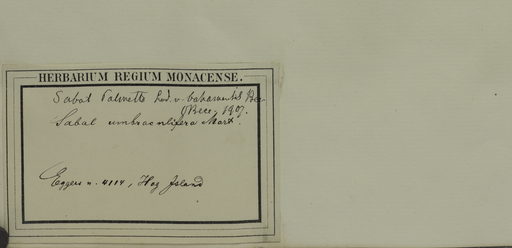 HERBARIUM REGIUM MONACENSE.
Sabal Palmetto Lod. v. bahamensis Bec.
(Becc. 1907.
Sabal umbraculifera Mart.
Eggers n. 4114, Hog Island